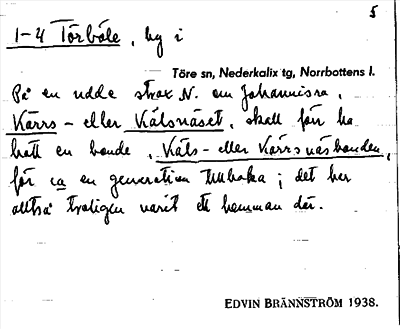 5
1-4 Törböle, by i
Töre sn, Nederkalix tg, Norrbottens l.
På en udde strax N. om Johannisra,
Kärrs- eller Kälsnäset, skall förr ha
bott en bonde, Käls- eller Kärrsnäsbonden,
för ca en generation tillbaka; det har
alltså troligen varit ett hemman där.
EDVIN BRÄNNSTRÖM 1938.